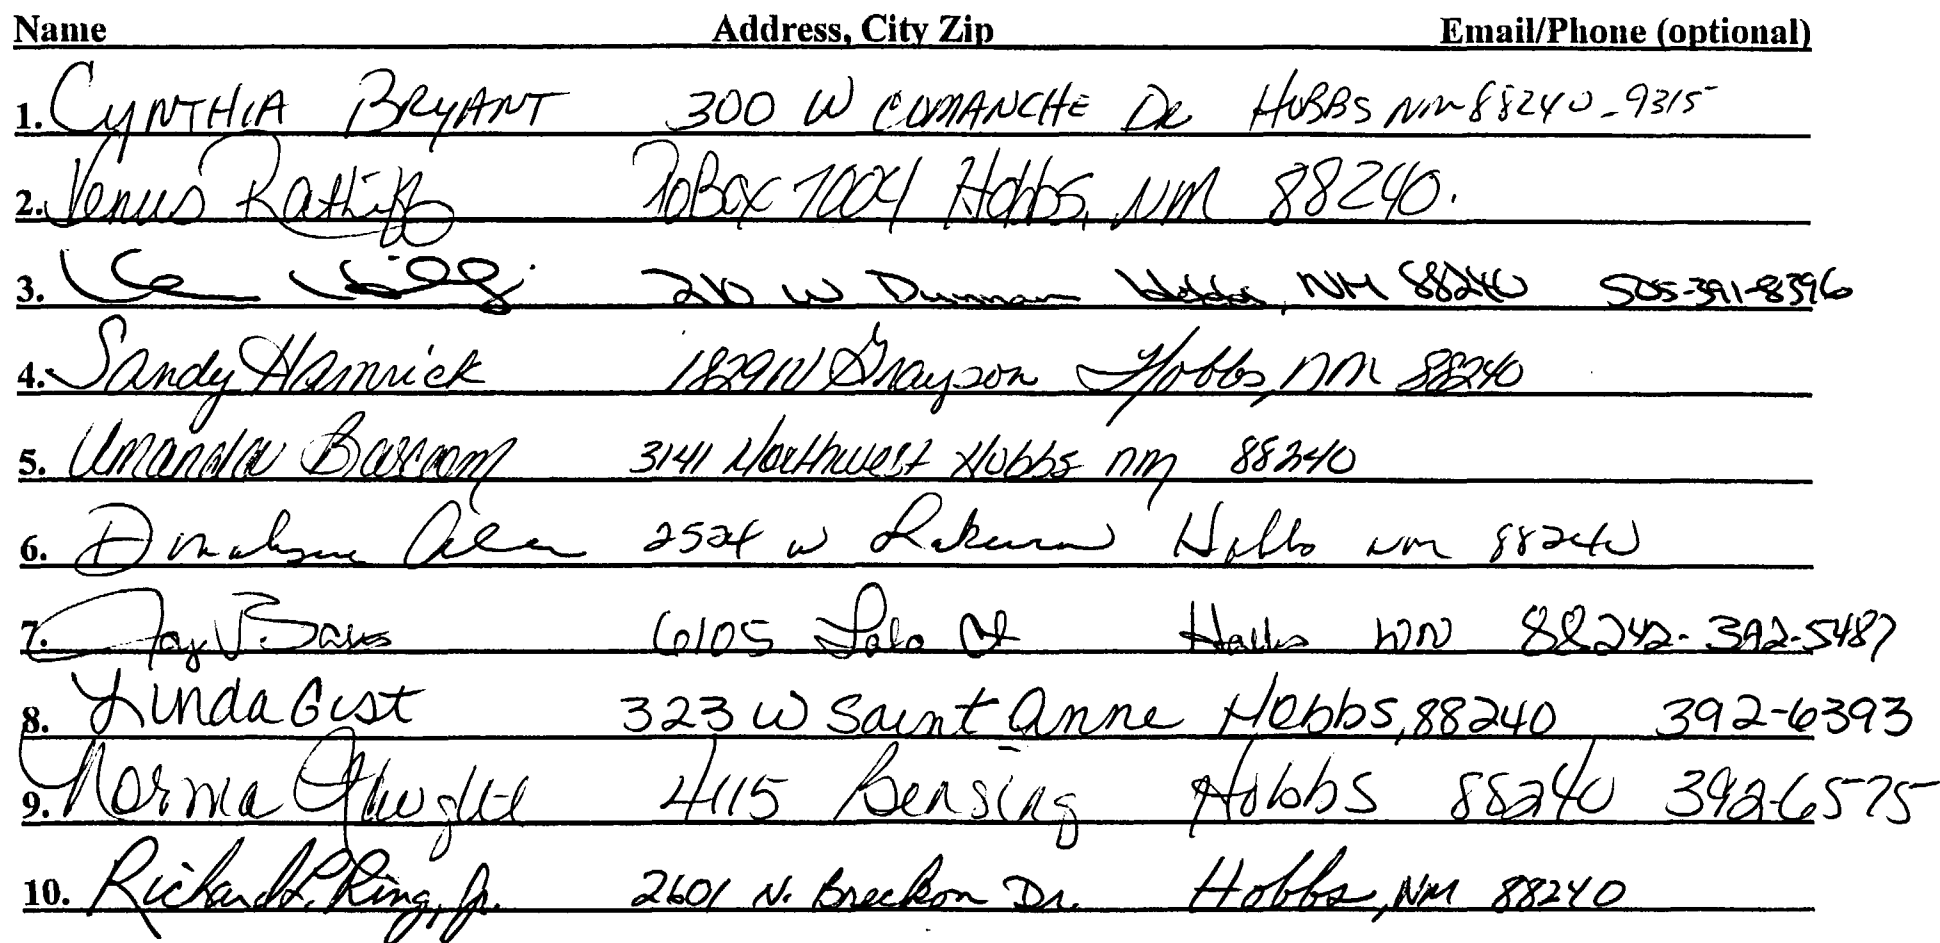 Name Address, City Zip Email/Phone (optional)
1. CYNTHIA BRYANT 300 W COMANCHE DR HOBBS NM 88240-9315
2. Venus Ratliff PO Box 7004 Hobbs, NM 88240.
3. 210 W Dunnam Hobbs, NM 88240 505-391-8396
4. Sandy Hamrick 1829 W Grayson Hobbs, NM 88240
5. Amanda 3141 Northwest Hobbs nm 88240
6. 2524 W Hobbs NM 88240
7. 6105 Lola Ct Hobbs NM 88242 - 392-5487
8. Linda Gist 323 W Saint Anne Hobbs, 88240 392-6393
9. Norma 4115 Bensing Hobbs 88240 392-6575
10. Richard L. Ring, Jr. 2601 N. Breckon Dr. Hobbs, NM 88240